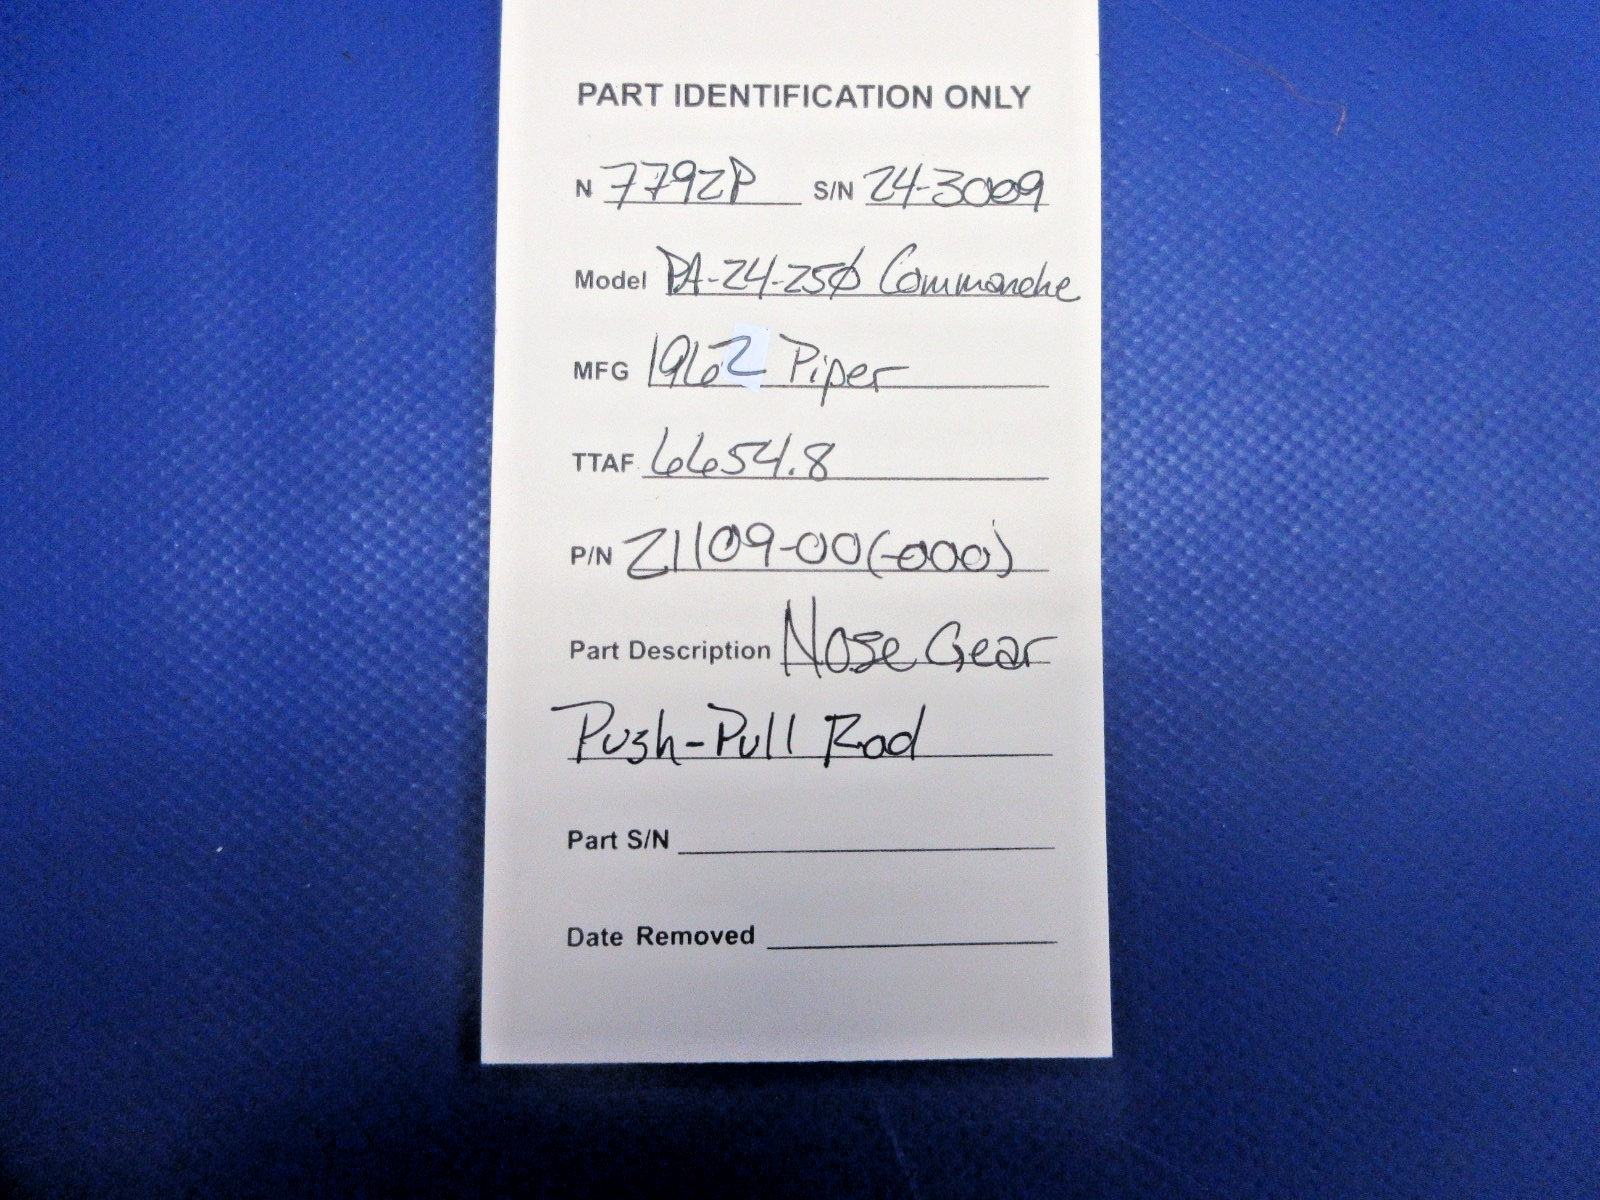 PART IDENTIFICATION ONLY
N 7792P S/N 24-3009
Model PA-24-250 Commanche
MFG 1962 Piper
TTAF 6654.8
P/N 21109-00(-000)
Part Description Nose Gear
Push-Pull Rod
Part S/N
Date Removed